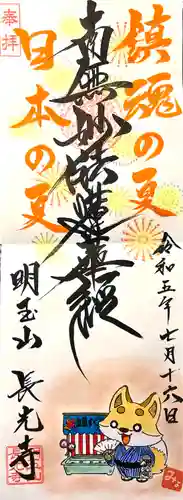 鎮魂の夏
日本の夏
奉拝
南無妙法蓮華経
令和五年七月十六日
明玉山
長光寺